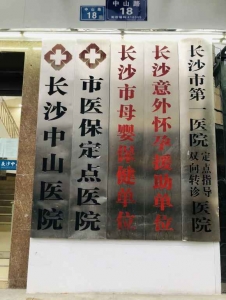 中山路
18
中山路
18
长沙中山医院
市医保定点医院
长沙市母婴保健单位
长沙意外怀孕援助单位
长沙市第一医院
定点指导
双向转诊
医院